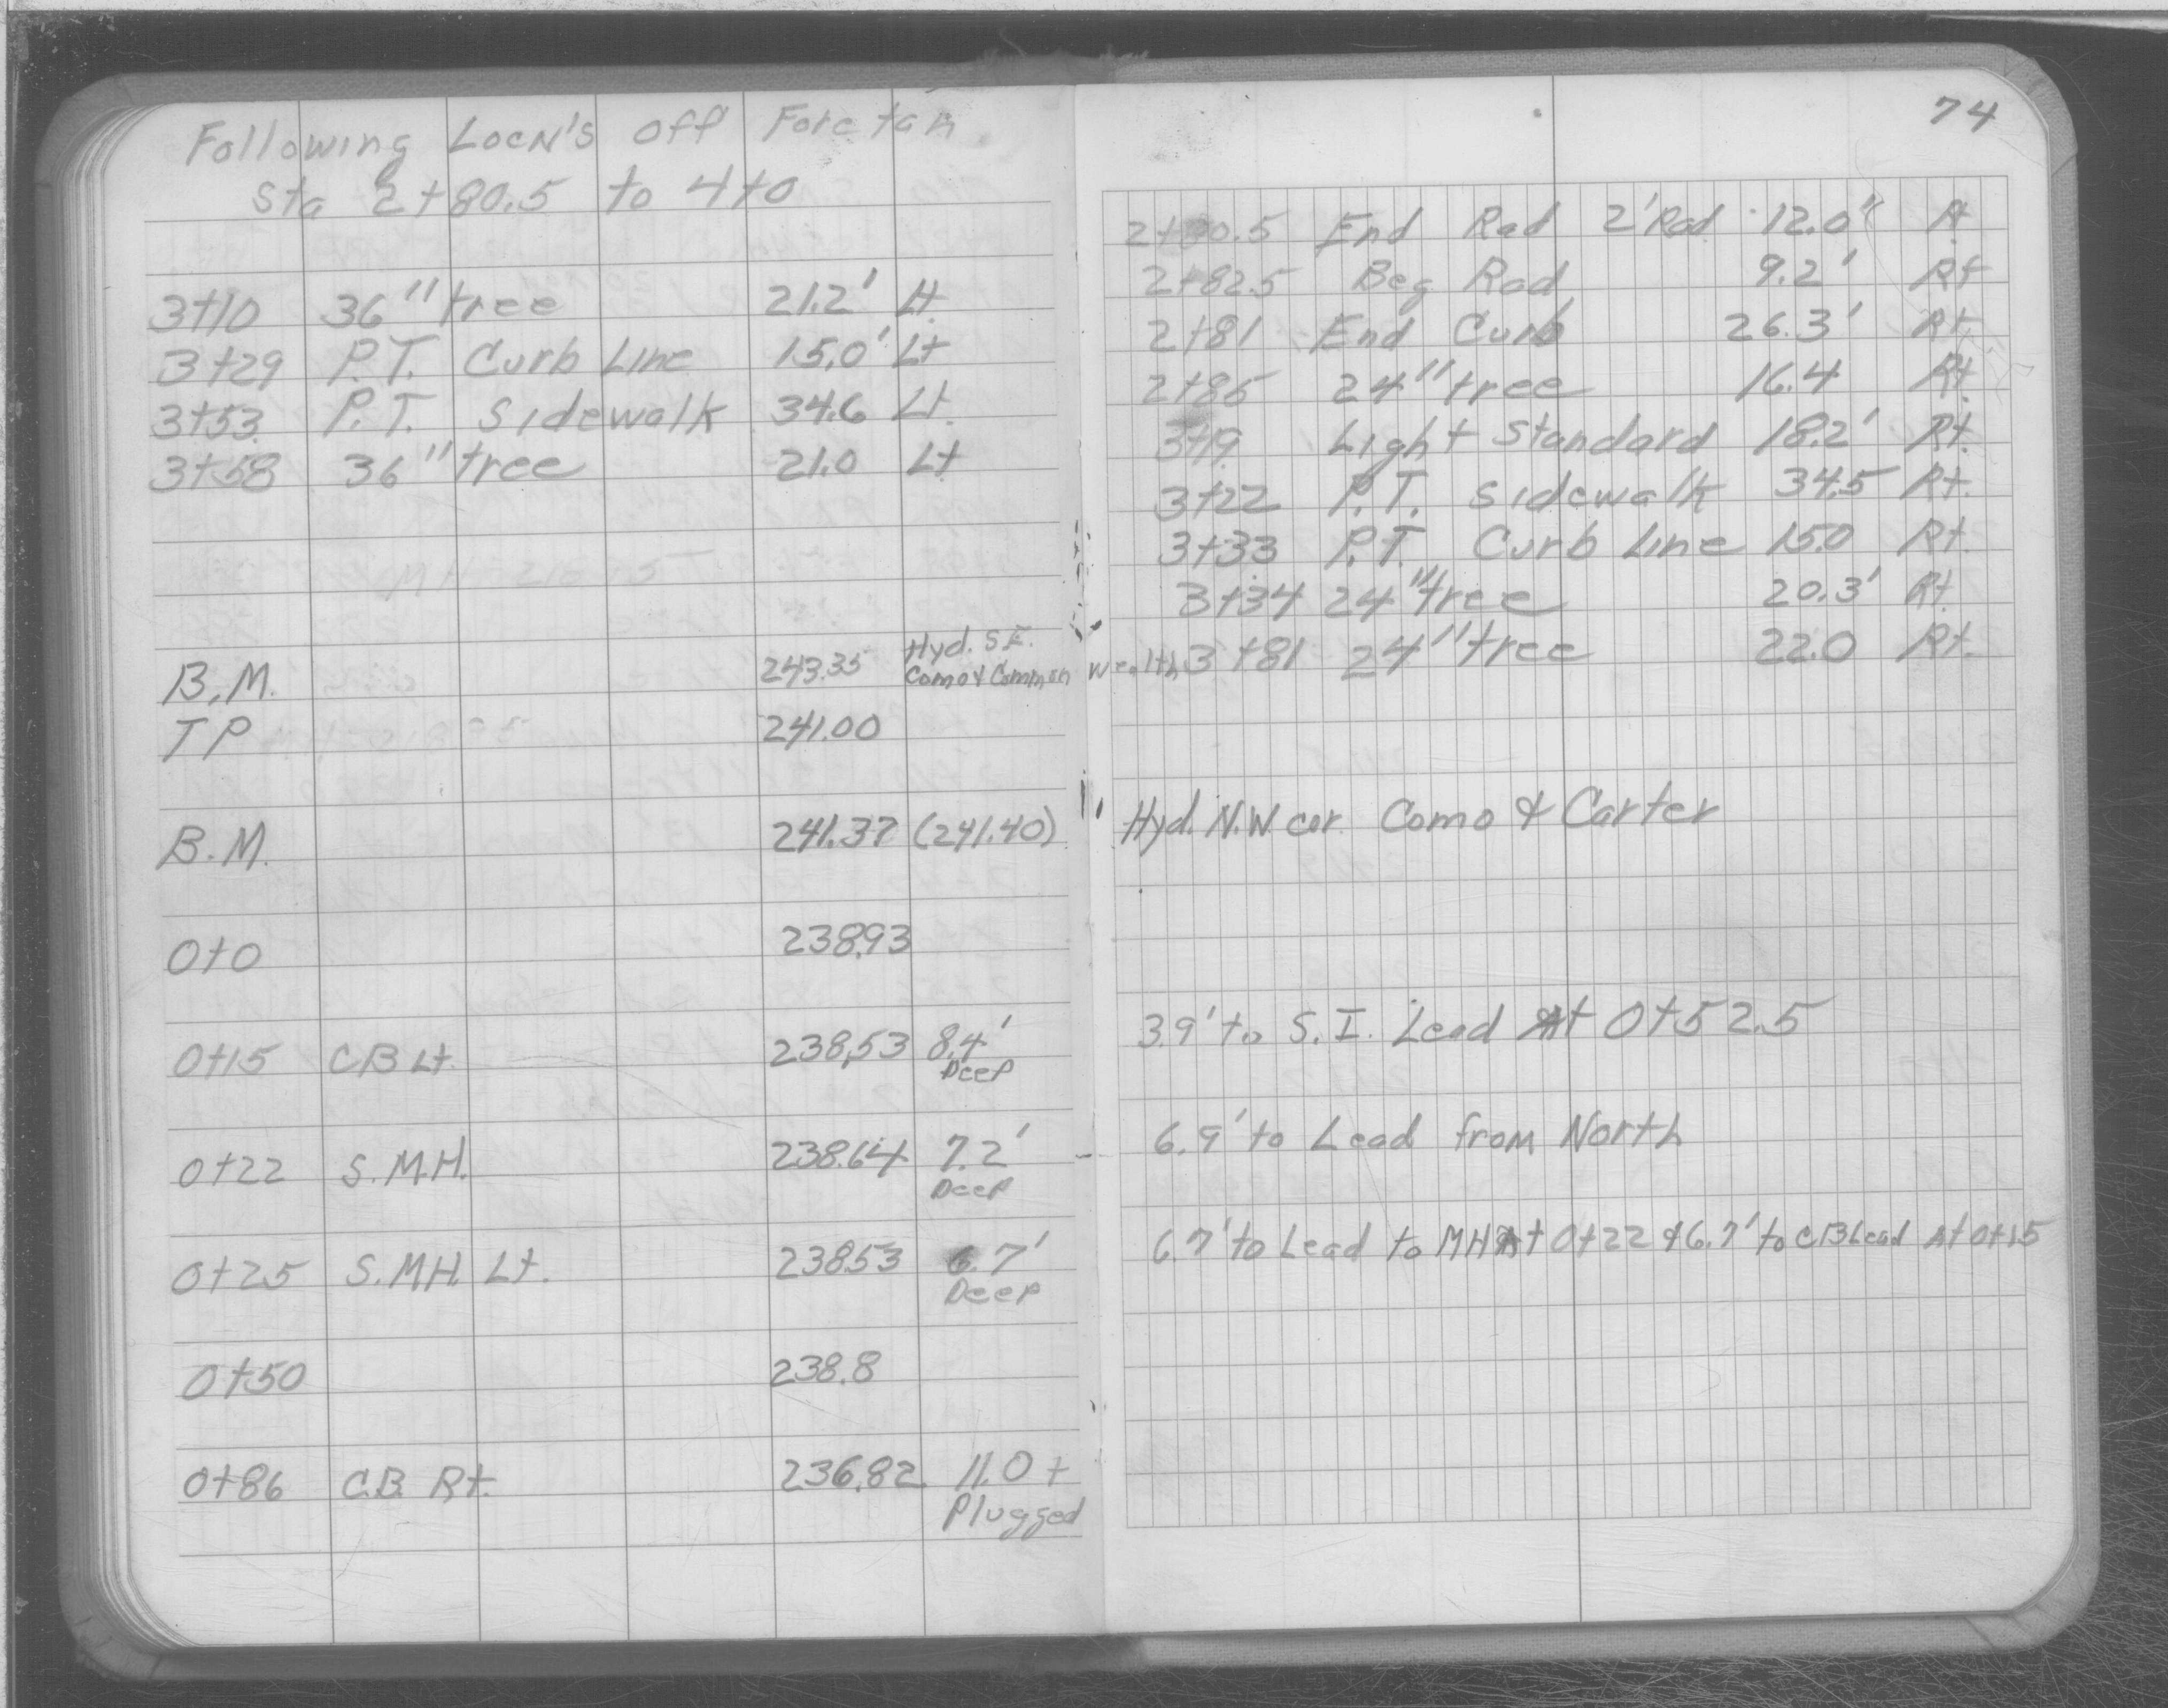 Following Locn's off Foretan.
Sta 2+80.5 to 4+0
3+10 36" tree 21.2' Lt.
3+29 P.T. Curb Line 15.0' Lt
3+53 P.T. Sidewalk 34.6 Lt.
3+58 36" tree 21.0 Lt
B.M. 243.35 Hyd. S.E.
Como & Commonwealth
TP 241.00
B.M. 241.37 (241.40)
0+0 238.93
0+15 CB Lt. 238.53 8.4'
Deep
0+22 S.M.H. 238.64 7.2'
Deep
0+25 S.M.H. Lt. 238.53 6.7'
Deep
0+50 238.8
0+86 C.B. Rt. 236.82 11.0+
Plugged
74
2+80.5 End Rad 2' Rad 12.0' Rt
2+82.5 Beg Rad 9.2' Rt
2+81 End Curb 26.3' Rt.
2+85 24" tree 16.4 Rt.
3+19 Light Standard 18.2' Rt.
3+22 P.T. Sidewalk 34.5 Rt.
3+33 P.T. Curb Line 15.0 Rt.
3+34 24" tree 20.3' Rt.
3+81 24" tree 22.0 Rt.
Hyd. N.W. cor. Como & Carter
3.9' to S.I. Lead At 0+52.5
6.9' to Lead from North
6.7' to Lead to MH At 0+22 & 6.7' to CB Lead At 0+15